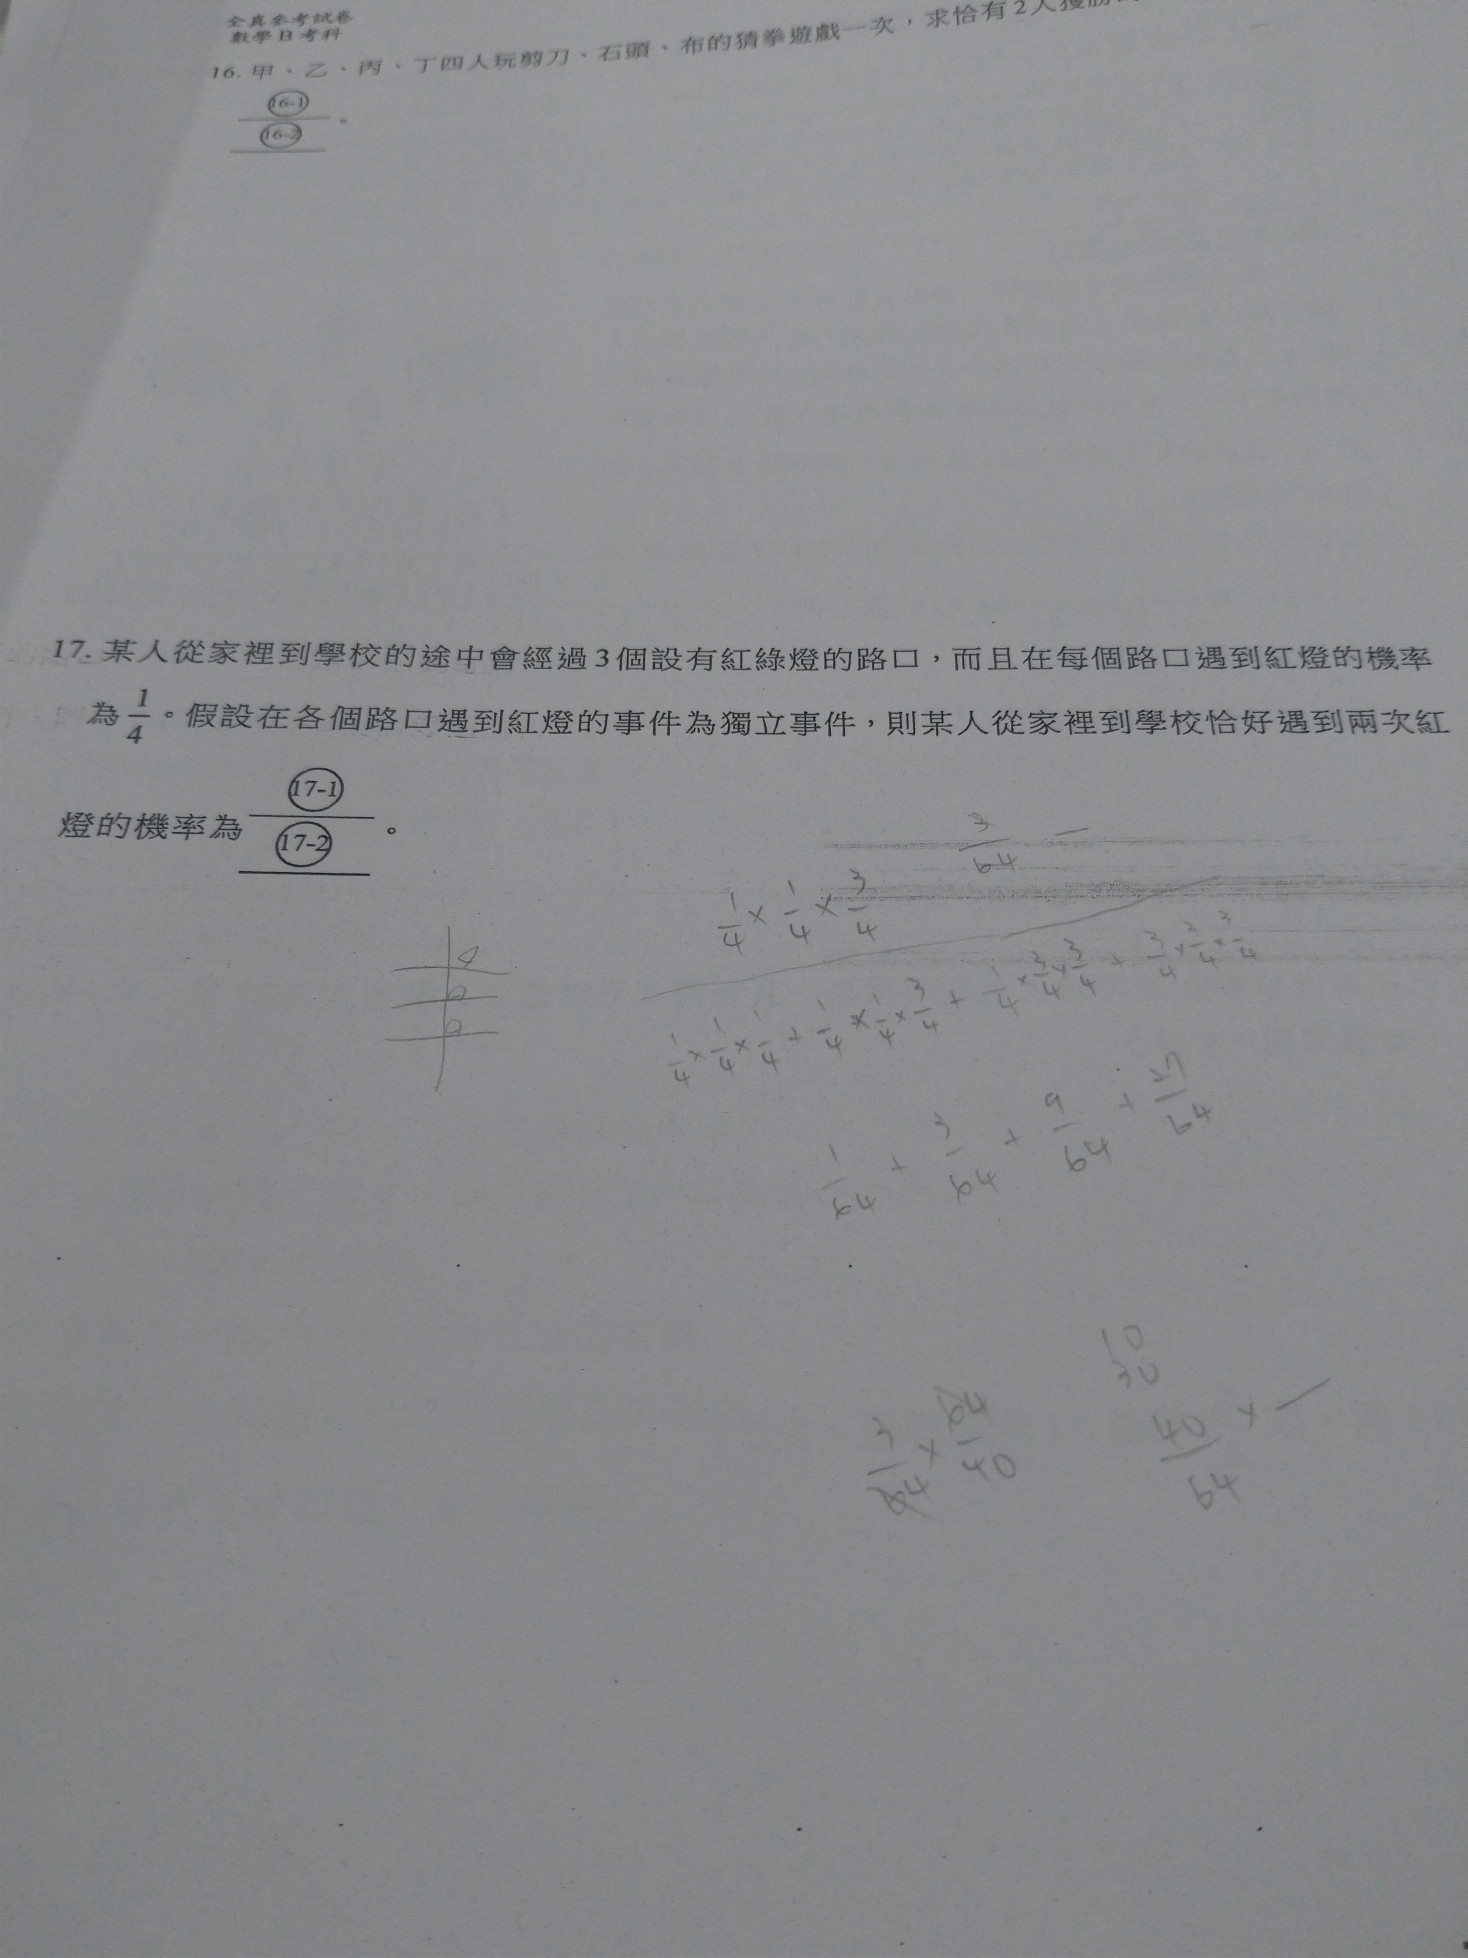 全真參考試卷
數學B考科
16. 甲、乙、丙、丁四人玩剪刀、石頭、布的猜拳遊戲一次,求恰有2人獲勝
16-1
16-2 。
17. 某人從家裡到學校的途中會經過3個設有紅綠燈的路口,而且在每個路口遇到紅燈的機率
為1/4。假設在各個路口遇到紅燈的事件為獨立事件,則某人從家裡到學校恰好遇到兩次紅
燈的機率為 17-1
17-2 。
3/64 —
1/4 × 1/4 × 3/4
1/4 × 1/4 × 1/4 + 1/4 × 1/4 × 3/4 + 1/4 × 3/4 × 3/4 + 3/4 × 3/4 × 3/4
1/64 + 3/64 + 9/64 + 27/64
10
30
3/64 × 64/40
40/64 × —